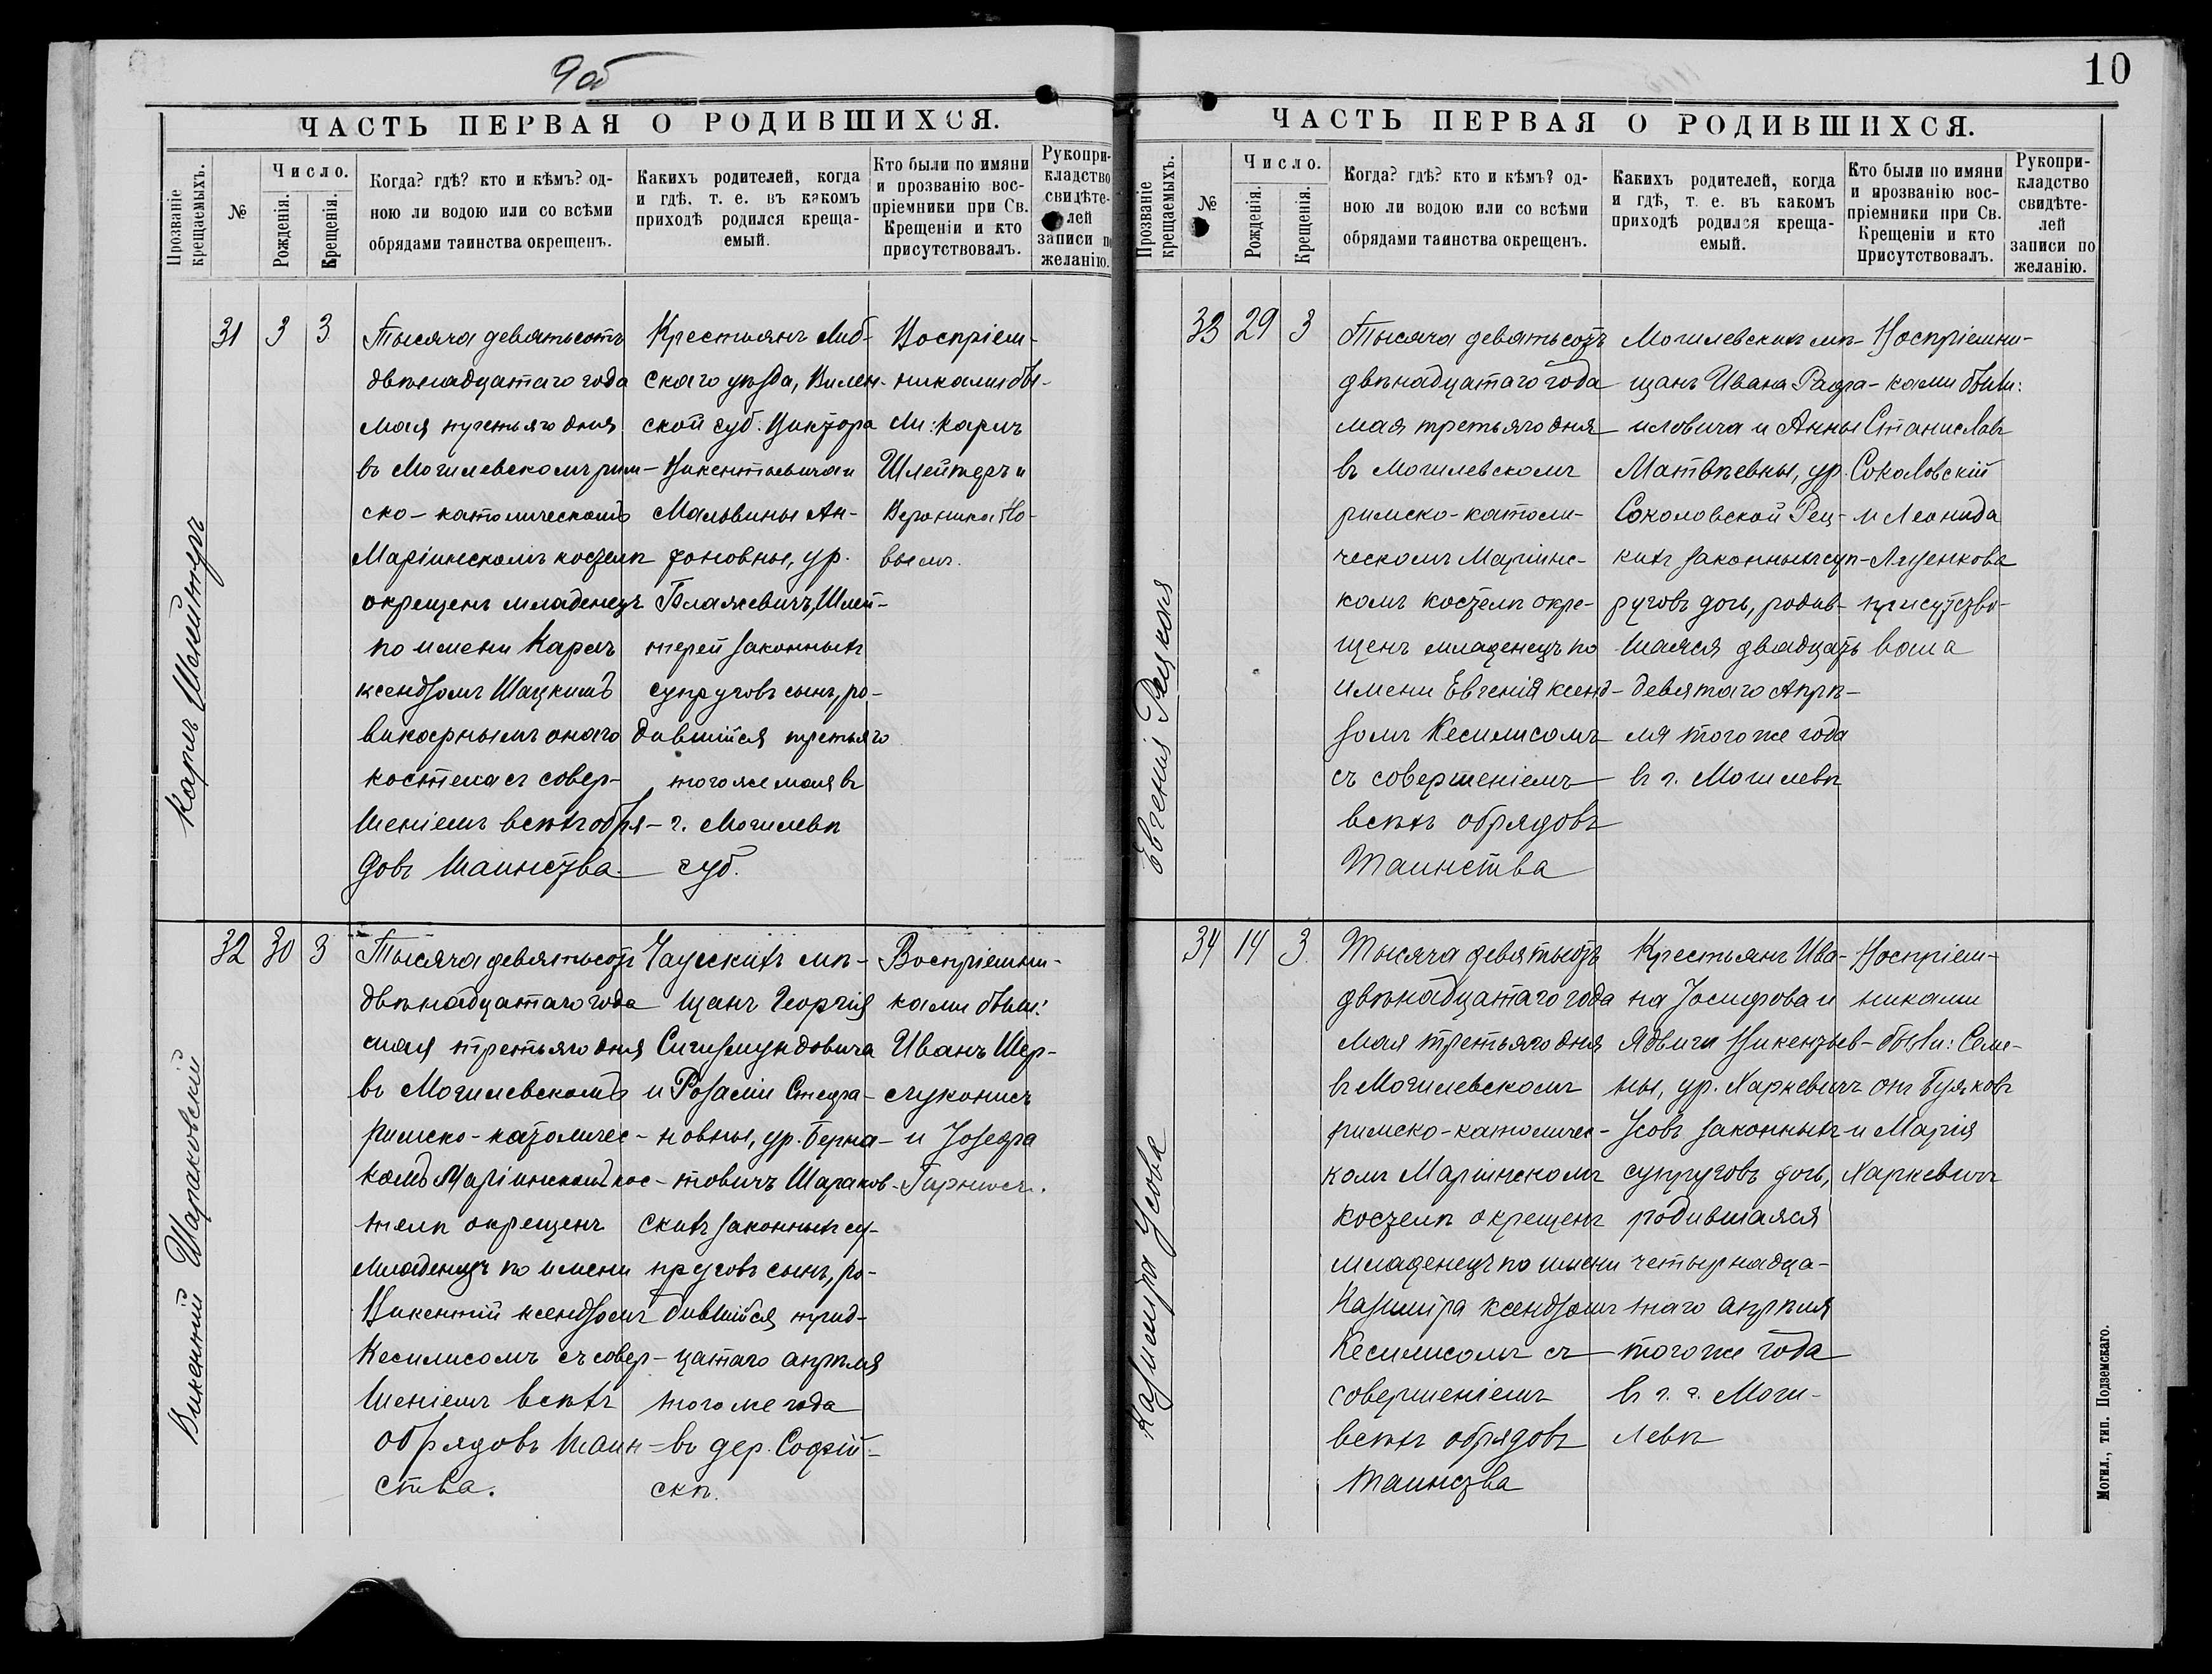 9об
ЧАСТЬ ПЕРВАЯ О РОДИВШИХСЯ.
Прозваніе крещаемыхъ.
№
Число.
Рожденія.
Крещенія.
Когда? гдѣ? кто и кѣмъ? од-
ною ли водою или со всѣми
обрядами таинства окрещенъ.
Какихъ родителей, когда
и гдѣ, т. е. въ какомъ
приходѣ родился креща-
емый.
Кто были по имяни
и прозванію вос-
пріемники при Св.
Крещеніи и кто
присутствовалъ.
Рукопри-
кладство
свидѣте-
лей
записи по
желанію.
Карлъ Шлейтеръ
31 3 3
Тысяча девятьсотъ
двѣнадцатаго года
мая третьяго дня
въ Могилевскомъ рим-
ско-католическомъ
Маріинскомъ костелѣ
окрещенъ младенецъ
по имени Карлъ
ксендзомъ Шацкимъ
викарнымъ онаго
костела съ совер-
шеніемъ всѣхъ обря-
довъ таинства.
Крестьянъ Лид-
скаго уѣзда, Вилен-
ской губ. Виктора
Викентьевича и
Мальвины Ан-
тоновны, ур.
Блажевичъ, Шлей-
терей законныхъ
супруговъ сынъ, ро-
дившійся третьяго
того же мая въ
г. Могилевѣ
губ.
Воспріем-
никами бы-
ли: Карлъ
Шлейтеръ и
Вероника Но-
выслъ.
Викентій Шараковскій
32 30 3
Тысяча девятьсотъ
двѣнадцатаго года
мая третьяго дня
въ Могилевскомъ
римско-католичес-
комъ Маріинскомъ кос-
телѣ окрещенъ
младенецъ по имени
Викентій ксендзомъ
Кесилисомъ съ совер-
шеніемъ всѣхъ
обрядовъ таин-
ства.
Чаусскихъ мѣ-
щанъ Георгія
Сигизмундовича
и Розаліи Стефа-
новны, ур. Берна-
товичъ Шараков-
скихъ законныхъ су-
пруговъ сынъ, ро-
дившійся трид-
цатаго апрѣля
того же года
въ дер. Софій-
скѣ.
Воспріемни-
ками были:
Иванъ Шер-
и Іозефа
10
ЧАСТЬ ПЕРВАЯ О РОДИВШИХСЯ.
Прозваніе крещаемыхъ.
№
Число.
Рожденія.
Крещенія.
Когда? гдѣ? кто и кѣмъ? од-
ною ли водою или со всѣми
обрядами таинства окрещенъ.
Какихъ родителей, когда
и гдѣ, т. е. въ какомъ
приходѣ родился креща-
емый.
Кто были по имяни
и прозванію вос-
пріемники при Св.
Крещеніи и кто
присутствовалъ.
Рукопри-
кладство
свидѣте-
лей
записи по
желанію.
Евгенія Рецкая
33 29 3
Тысяча девятьсотъ
двѣнадцатаго года
мая третьяго дня
въ Могилевскомъ
римско-католи-
ческомъ Маріинс-
комъ костелѣ окре-
щенъ младенецъ по
имени Евгенія ксенд-
зомъ Кесилисомъ
съ совершеніемъ
всѣхъ обрядовъ
таинства
Могилевскихъ мѣ-
щанъ Ивана Рафа-
иловича и Анны
Матвѣевны, ур.
Соколовской Рец-
кихъ законныхъ суп-
руговъ дочь, родив-
шаяся двадцать
девятаго Апрѣ-
ля того же года
въ г. Могилевѣ
Воспріемни-
ками были:
Станиславъ
Соколовскій
и Леонида
Ляценкова
присутство-
вала
Казимира Усова
34 14 3
Тысяча девятьсотъ
двѣнадцатаго года
мая третьяго дня
въ Могилевскомъ
римско-католичес-
комъ Маріинскомъ
костелѣ окрещенъ
младенецъ по имени
Казимира ксендзомъ
Кесилисомъ съ
совершеніемъ
всѣхъ обрядовъ
таинства
Крестьянъ Ива-
на Іосифова и
Ядвиги Викентьев-
ны, ур. Харкевичъ
Усовъ законныхъ
супруговъ дочь,
родившаяся
четырнадца-
таго апрѣля
того же года
въ г. г. Моги-
левѣ
Воспріем-
никами
были: Семі-
онъ Буяковъ
и Марія
Харкевичъ
Могил., тип. Подземскаго.